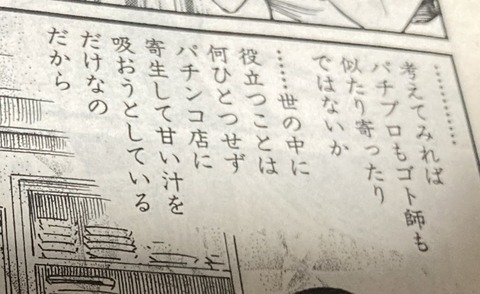 …………
考えてみれば
パチプロもゴト師も
似たり寄ったり
ではないか
……世の中に
役立つことは
何ひとつせず
パチンコ店に
寄生して甘い汁を
吸おうとしている
だけなの
だから